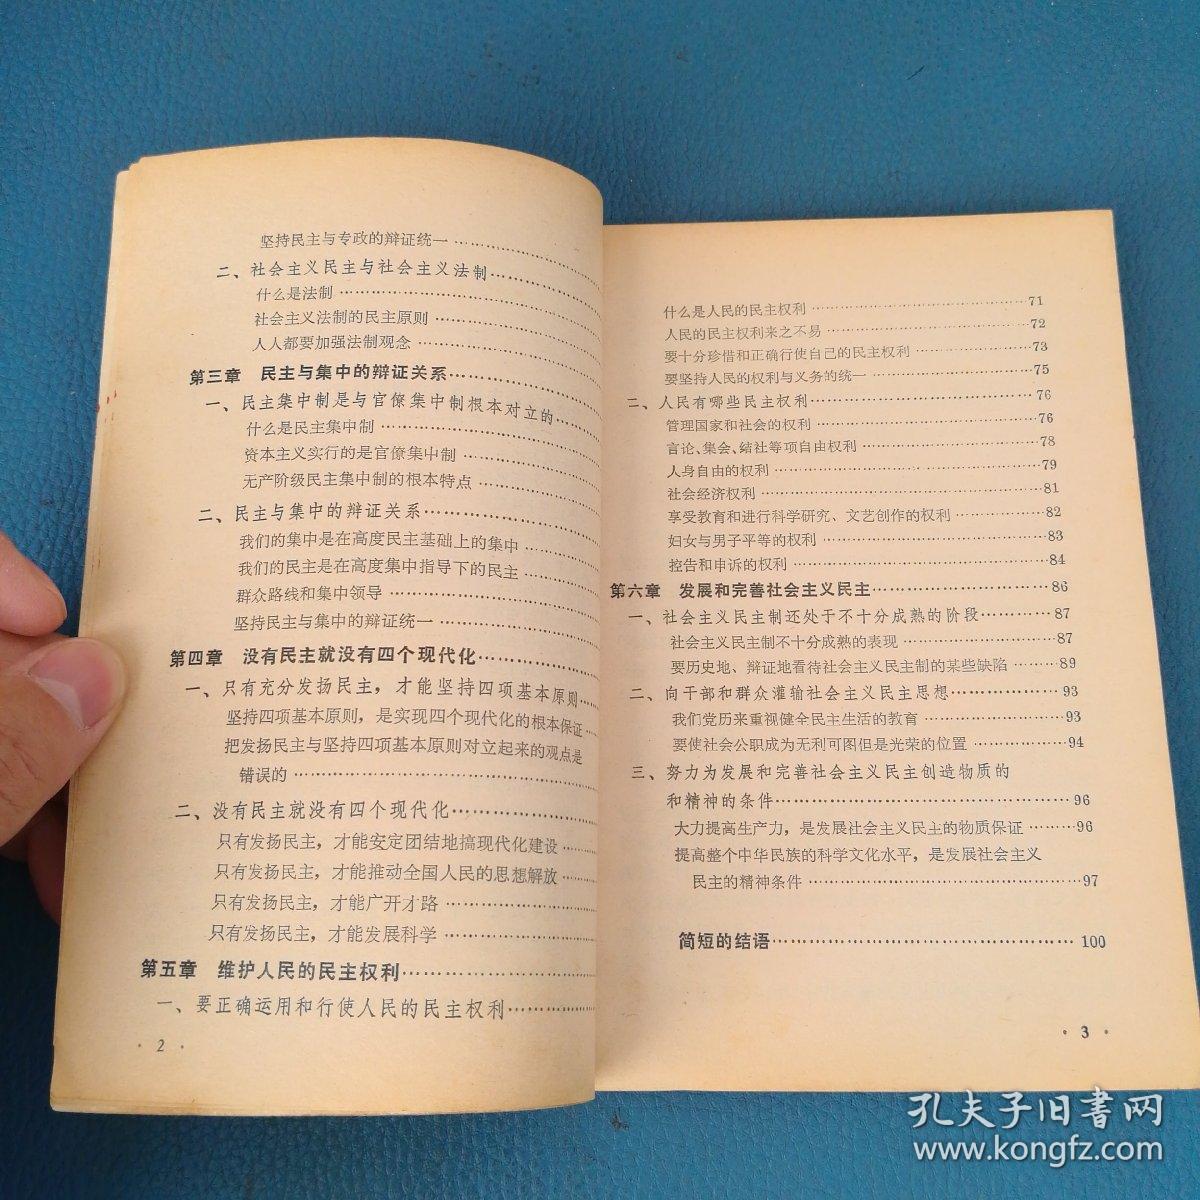 坚持民主与专政的辩证统一……………
二、社会主义民主与社会主义法制…………
什么是法制……………………
社会主义法制的民主原则……………
人人都要加强法制观念……………
第三章 民主与集中的辩证关系……………
一、民主集中制是与官僚集中制根本对立的……
什么是民主集中制……………………
资本主义实行的是官僚集中制……………
无产阶级民主集中制的根本特点…………
二、民主与集中的辩证关系……………
我们的集中是在高度民主基础上的集中………
我们的民主是在高度集中指导下的民主………
群众路线和集中领导……………………
坚持民主与集中的辩证统一……………
第四章 没有民主就没有四个现代化…………
一、只有充分发扬民主，才能坚持四项基本原则…
坚持四项基本原则，是实现四个现代化的根本保证…
把发扬民主与坚持四项基本原则对立起来的观点是
错误的……………………………
二、没有民主就没有四个现代化……………
只有发扬民主，才能安定团结地搞现代化建设……
只有发扬民主，才能推动全国人民的思想解放……
只有发扬民主，才能广开才路……………
只有发扬民主，才能发展科学……………
第五章 维护人民的民主权利……………
一、要正确运用和行使人民的民主权利…………
· 2 ·
什么是人民的民主权利……………………71
人民的民主权利来之不易……………………72
要十分珍惜和正确行使自己的民主权利…………73
要坚持人民的权利与义务的统一……………75
二、人民有哪些民主权利……………………76
管理国家和社会的权利……………………76
言论、集会、结社等项自由权利……………78
人身自由的权利……………………79
社会经济权利……………………81
享受教育和进行科学研究、文艺创作的权利………82
妇女与男子平等的权利……………………83
控告和申诉的权利……………………84
第六章 发展和完善社会主义民主……………86
一、社会主义民主制还处于不十分成熟的阶段………87
社会主义民主制不十分成熟的表现……………87
要历史地、辩证地看待社会主义民主制的某些缺陷……89
二、向干部和群众灌输社会主义民主思想…………93
我们党历来重视健全民主生活的教育……………93
要使社会公职成为无利可图但是光荣的位置………94
三、努力为发展和完善社会主义民主创造物质的
和精神的条件……………………96
大力提高生产力，是发展社会主义民主的物质保证………96
提高整个中华民族的科学文化水平，是发展社会主义
民主的精神条件……………………97
简短的结语……………………100
· 3 ·
孔夫子旧书网
www.kongfz.com